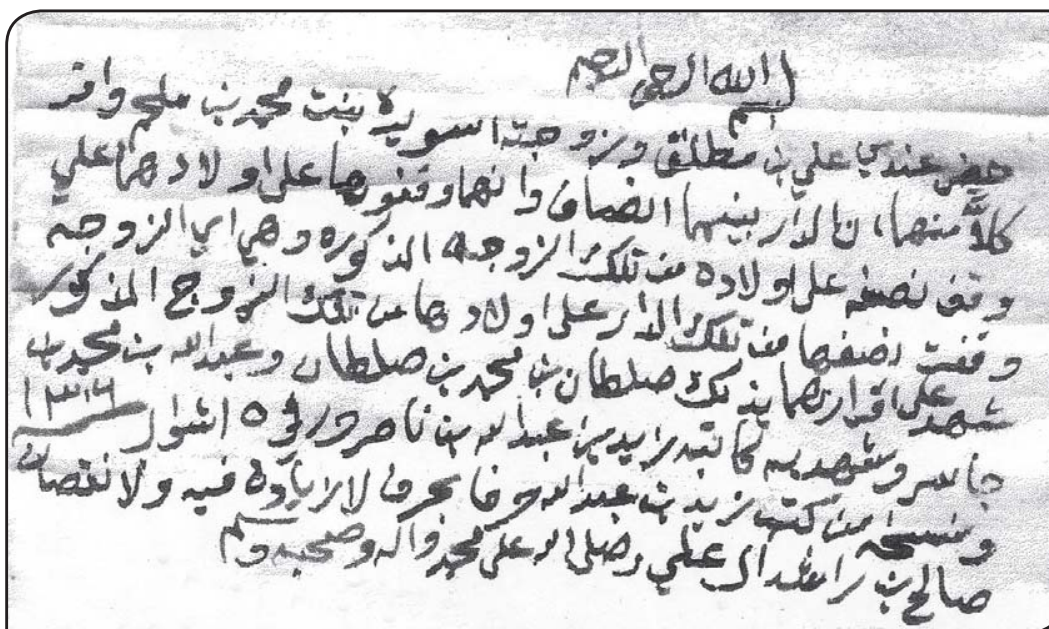 بسم الله الرحمن الرحيم
حضر عندي علي بن مطلق وزوجته اسويرة بنت محمد بن ملحم واقر
كلاً منهما، ن الدار بينهما انصاف وانهما وقفوها على اولادهما علي
وقف نصفه على اولاده من تلك الزوجه المذكوره وهي اي الزوجه
وقفت نصفها من تلك الدار على اولادها من تلك الزوج المذكور
شهد على اقرارهما بذلك صلطان بن محمد بن صلطان وعبدالله بن محمد بن
جاسر وشهد به كاتبه زايد بن عبدالله بن ناصر ١٥ شوال ١٣٠٦
ونسخه من كتب زيد بن عبدالله حرفا بحرف لا زيادة فيه ولا نقصان
صالح بن راشد ال علي وصلى الله على محمد واله وصحبه وسلم